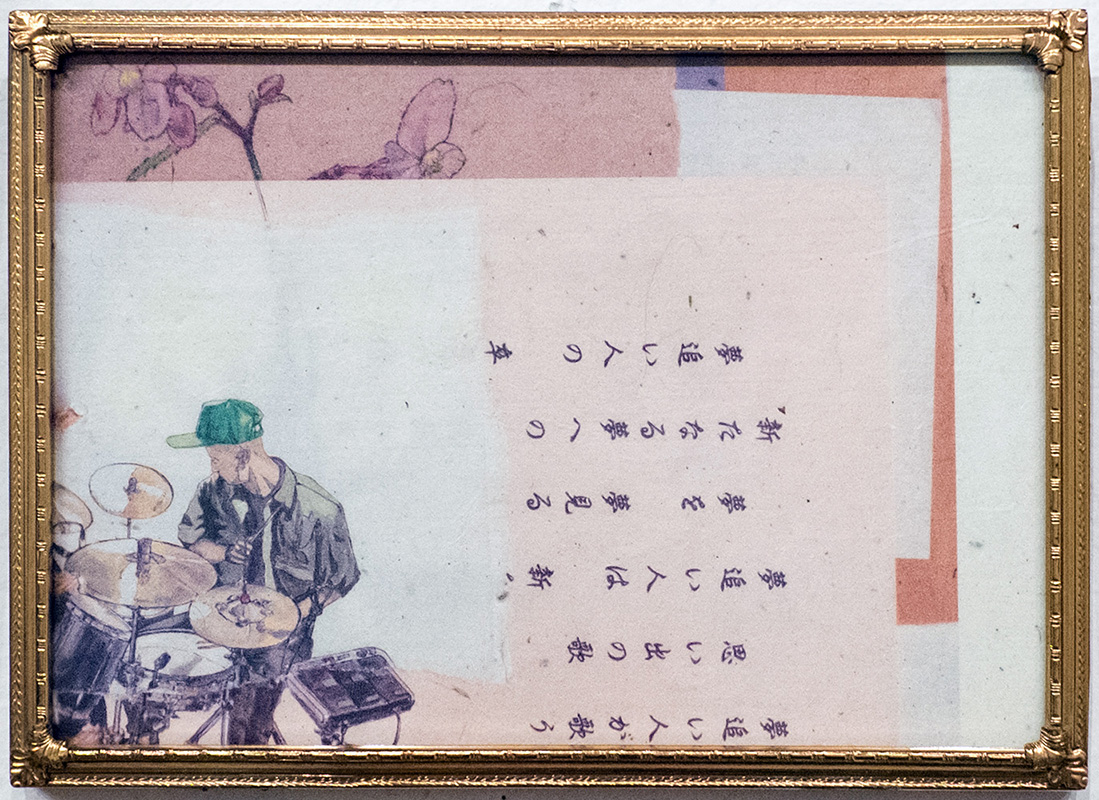 夢追い人が歌う
思い出の歌
夢追い人は 新
夢を 夢見る
新たなる夢への
夢追い人の 章